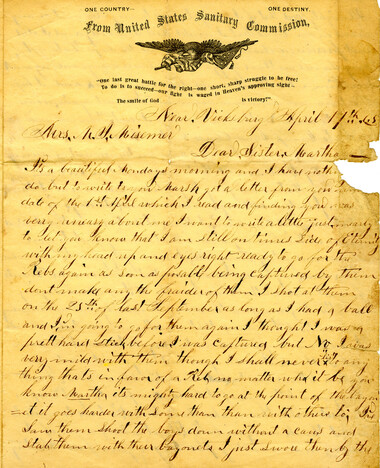 ONE COUNTRY— ONE DESTINY.
From United States Sanitary Commission,
"One last great battle for the right—one short, sharp struggle to be free!
To do is to succeed—our fight is waged in Heaven's approving sight—
The smile of God is victory!"
Near Vicksburg April 17th 65
Mrs. M. Y. Misemer
Dear Sister Martha
It's a beautiful Mondays morning and I have nothing
do but to write to you Marth got a letter from you
date of the 1st April which I read and finding you was
very uneasy about me I want to write a little just
to let you know that I am still on times Side of Eternity
with my head up and eyes right ready to go for the
Rebs again as soon as being captured by them
dont make any the fraider of them I shot at them
on the 25th of last September as long as I had a ball
and I'm going to go for them again I thought I was
prett hard Stick before I was captured but No I was
very mild with them though I shall never to any
thing thats in favor of a Reb no matter who it be you
know Marther its mighty hard to go at the point of the bayon
et it goes harder with some than than with others to
them shoot the boys down without a caus and
stab them with their bayonets I just swore then by the